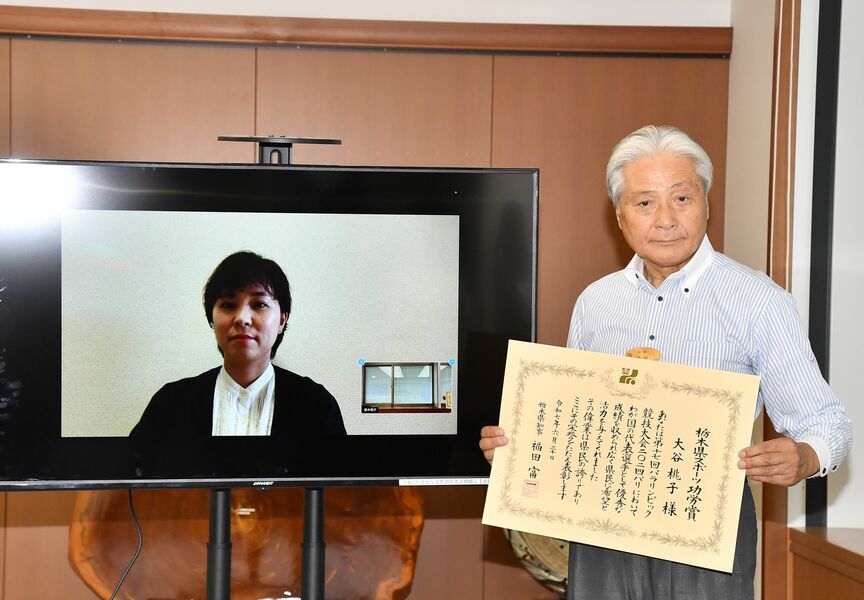 栃木県スポーツ功労賞
大谷桃子様
あなたは第十七回パラリンピック
競技大会二〇二四パリにおいて
わが国の代表選手として優秀な
成績を収められ広く県民に希望と
活力を与えてくれました
その偉業は県民の誇りであり
ここにその栄誉をたたえ表彰します
令和七年六月三十日
栃木県知事 福田富一
JAPANNEXT